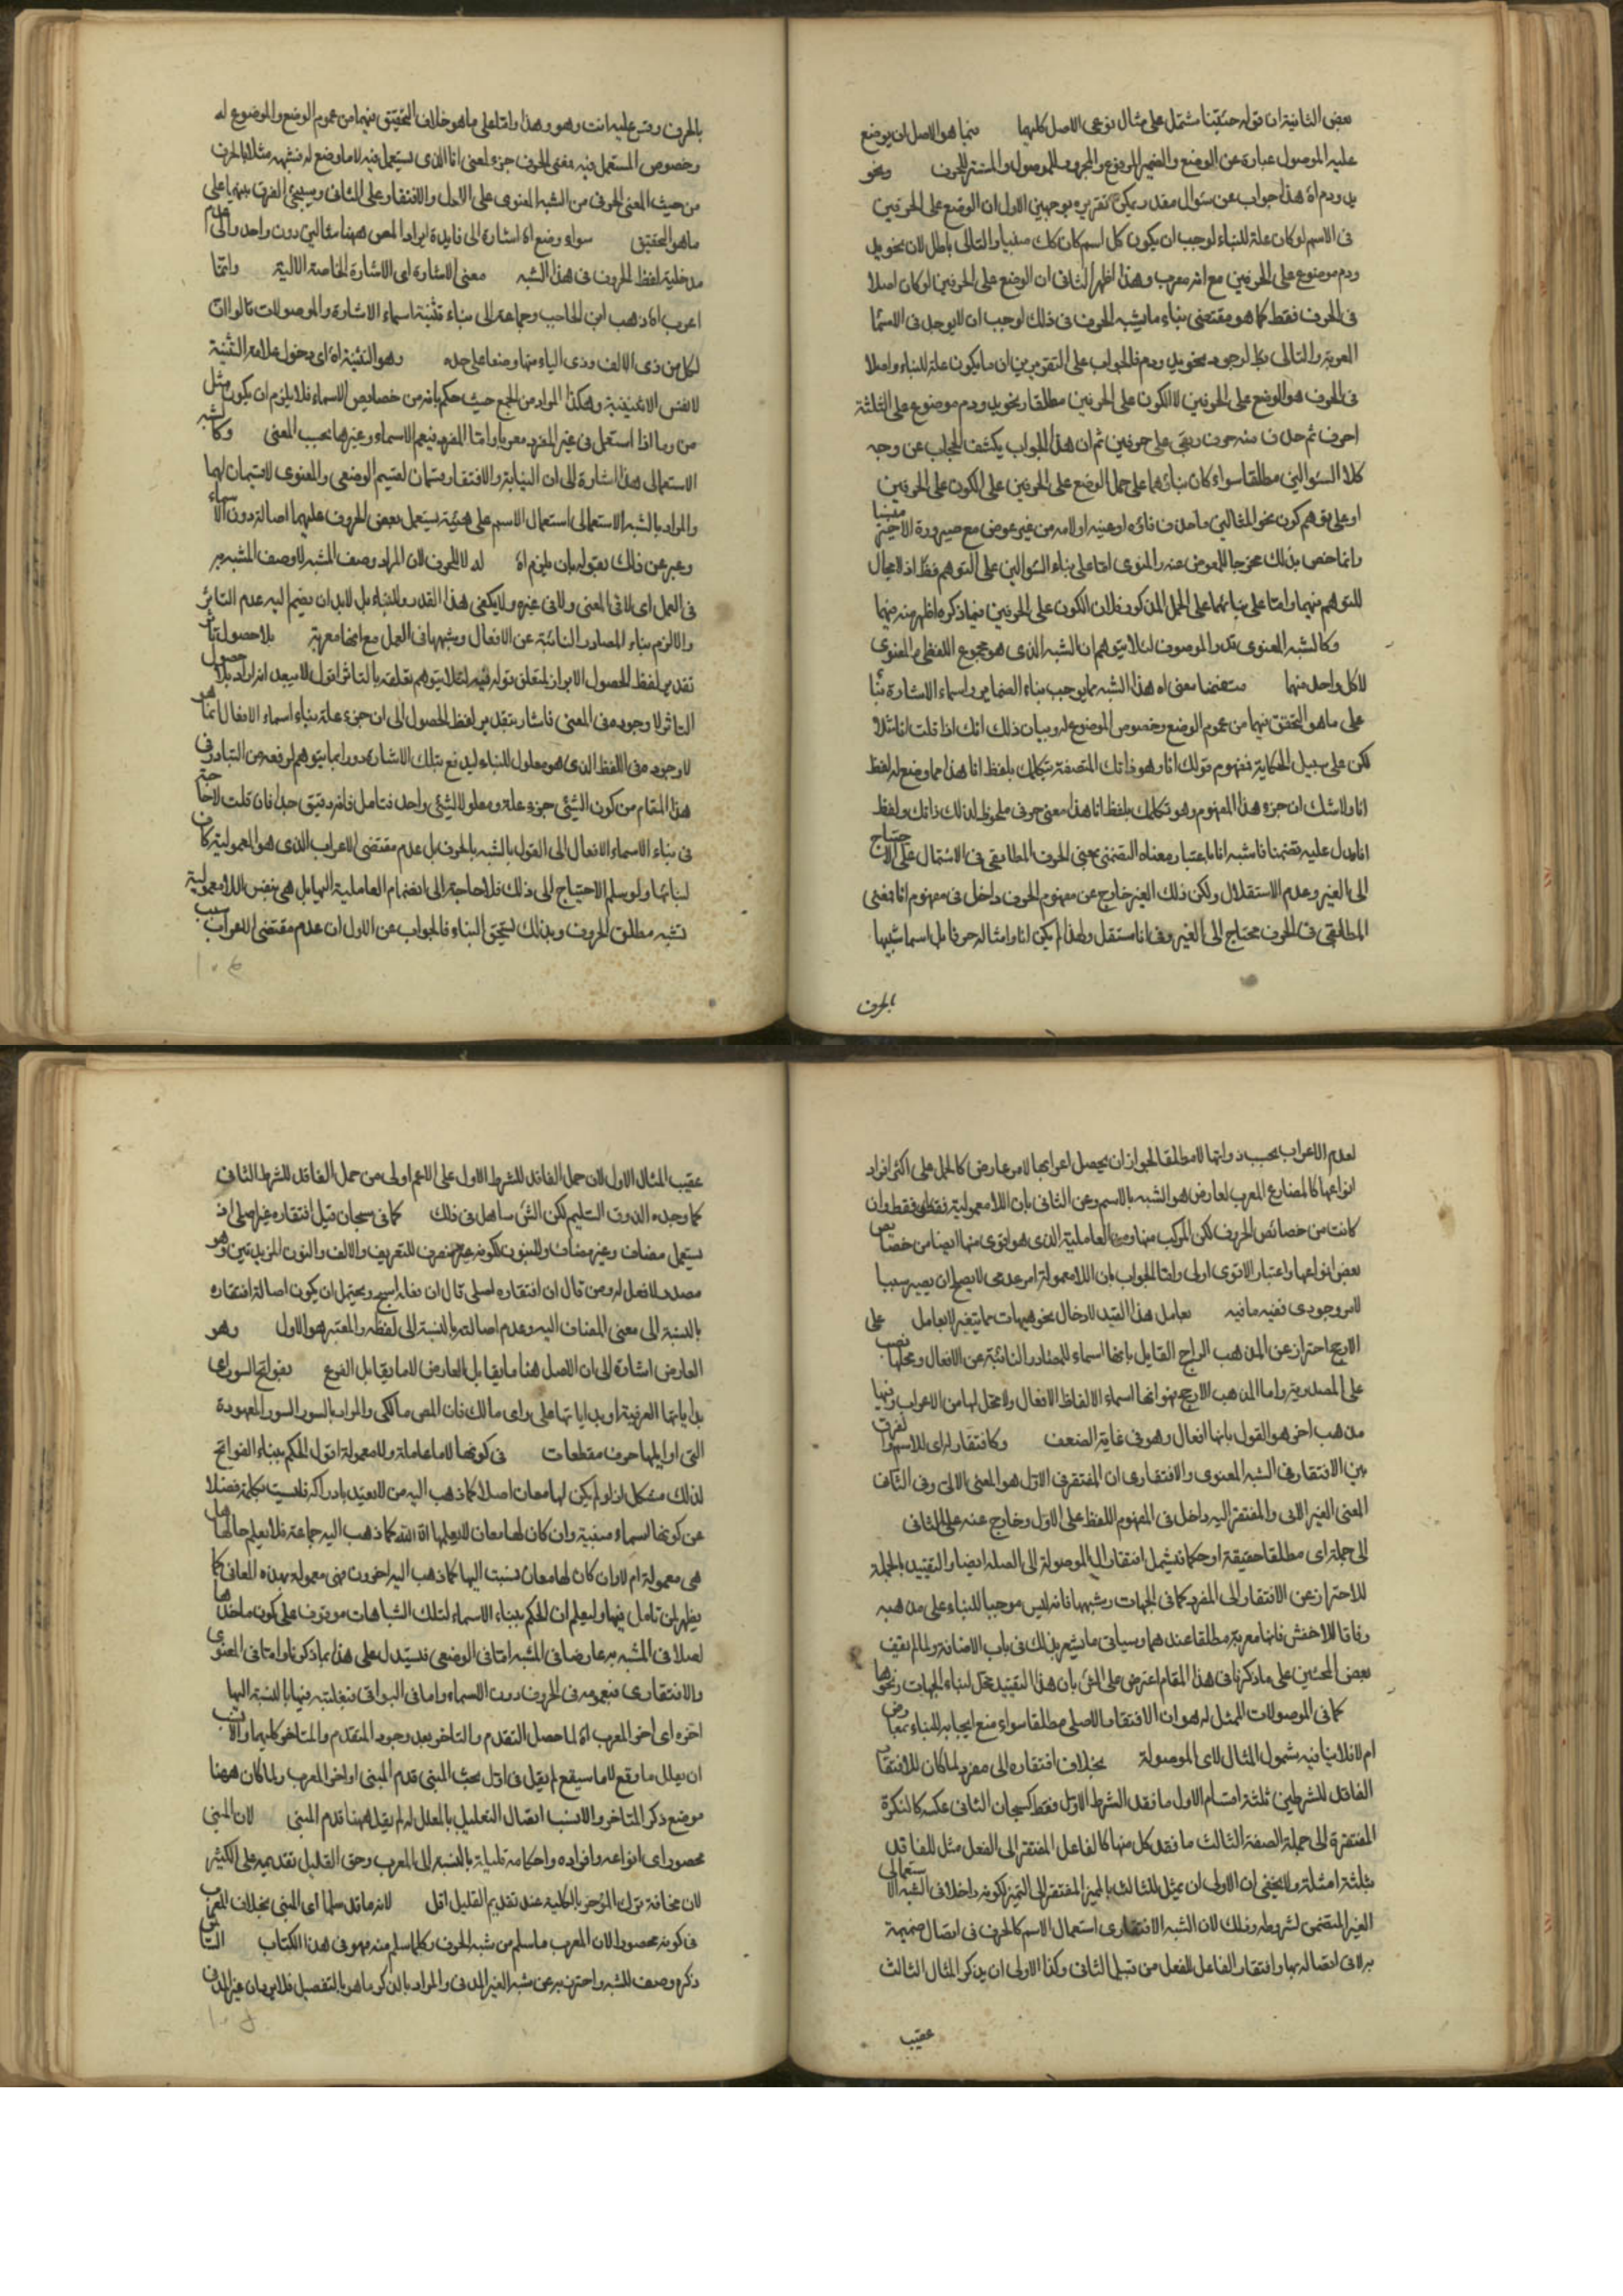 بعض الثانية ان قوله حقيقنا مشتمل على مثال نوعى الاصل كليهما فيما هو الاصل ان يوضع
عليه الموصول عبارة عن الوضع والضمير المرفوع والمجرور للموصول والمستتر للحرف ونحو
يد ودم اه هذا جواب عن سئوال مقدر ويمكن تقريره بوجهين الاول ان الوضع على الحرفين
فى الاسم لو كان علة للبناء لوجب ان يكون كل اسم كان كك مبنيا والتالى باطل لان نحو يد
ودم موضوع على الحرفين مع انه معرب وهذا اظهر الثانى ان الوضع على الحرفين لو كان اصلا
فى الحرف فقط كما هو مقتضى بناء ما يشبه الحرف فى ذلك لوجب ان لا يوجد فى الاسما
المعربة والتالى بط لوجود نحو يد ودم فالجواب على التقريرين ان ما يكون علة للبناء واصلا
فى الحرف هو الوضع على الحرفين لا الكون على الحرفين مطلقا ونحو يد ودم موضوع على الثلثة
احرف ثم حذف منه حرف وبقى على حرفين ثم ان هذا الجواب يكشف الحجاب عن وجه
كلا السئوالين مطلقا سواء كان بناؤهما على حمل الوضع على الحرفين على الكون على الحرفين
او على توهم كون نحو المثالين ما حذف فائه او عينه او لامه من غير عوض مع صيرورة الاخير
وانما خص بذلك مخرجا للمعوض عنه والمنوى اما على بناء السئوالين على التوهم فظ اذ لا مجال
للتوهم فيهما واما على بنائهما على الحمل المذكور فلان الكون على الحرفين فيما ذكره اظهر منه فيهما
وكالشبه المعنوى قدر الموصوف لئلا يتوهم ان الشبه الذى هو مجموع اللفظى والمعنوى
لا كل واحد منهما متضمنا معنى اه هذا الشبه مما يوجب بناء الضماير واسماء الاشارة بنا
على ما هو التحقيق فيهما من عموم الوضع وخصوص الموضوع له وبيان ذلك انك اذا قلت انا مثلا
لكن على سبيل الحكاية فمفهوم قولك انا وهو ذاتك المتصفة بتكلمك بلفظ انا هذا مما وضع له لفظ
انا ولا شك ان جزء هذا المفهوم وهو تكلمك بلفظ انا هذا معنى حرفى ملحوظ لذلك ذاتك ولفظ
انا يدل عليه تضمنا فاشبه انا باعتبار معناه التضمنى بمعنى الحرف المطابقى فى الاشتمال على الاحتياج
الى الغير وعدم الاستقلال ولكن ذلك الغير خارج عن مفهوم الحرف داخل فى مفهوم انا فمعنى
المطابقى فى الحرف محتاج الى الغير وفى انا مستقل ولهذا لم يكن انا وامثاله حرفا بل اسما شبيها
بالحرف
بالحرف وقس عليه انت وهو وهذا واما على ما هو خلاف التحقيق فيهما من عموم الوضع والموضوع له
وخصوص المستعمل فيه فمعنى الحرف جزء لمعنى انا الذى يستعمل فيه لا ما وضع له فشبهه مثلا بالحرف
من حيث المعنى الحرفى من الشبه المعنوى على الاول والافتقار على الثانى وسيجئ الفرق بينهما على
ما هو التحقيق سواء وضع اه اشارة الى فايدة ايراد المص ههنا مثالين دون واحد والى عدم
مدخلية لفظ الحروف فى هذا الشبه معنى الاشارة اى الاشارة الخاصة الالية وانما
اعرب اه ذهب ابن الحاجب وجماعة الى بناء تثنية اسماء الاشارة والموصولات قالوا ان
لكل من ذى الالف وذى الياء منها وضعا على حده وهو التثنية اه اى دخول علامة التثنية
لا نفس الاثنينية وهكذا المراد من الجمع حيث حكم بانه من خصايص الاسماء فلا يلزم ان يكون مثل
من وما اذا استعمل فى غير المفرد معربا واما المفرد فيعم الاسماء وغيرها بحسب المعنى وكالشبه
الاستعمالى هذا اشارة الى ان النيابة والافتقار قسمان لقسيم الوضعى والمعنوى لا قسيمان لهما
والمراد بالشبه الاستعمالى استعمال الاسم على هيئة يستعمل بعض الحروف عليها اصالة دون الاسماء
وعبر عن ذلك بقوله بان يلزم اه له لا للحروف لان المراد وصف المشبه لا وصف المشبه به
فى العمل اى لا فى المعنى ولا فى غيره ولا يكفى هذا القدر للبناء بل لا بد ان يضم اليه عدم التاثر
والا لزم بناء المصادر النائبة عن الافعال وشبهها فى العمل مع انها معربة بلا حصول تاثر
تقديم لفظ الحصول الا بوان لمتعلق قوله فيه لئلا يتوهم تعلقه بالتاثر اقول لا يبعد انه اراد بلا حصول
التاثر لا وجوده فى المعنى فاشار بتقدير لفظ الحصول الى ان جزء علة بناء اسماء الافعال انما هو
لا وجوده فى اللفظ الذى هو معلول للبناء ليدفع بتلك الاشارة دورا ربما يتوهم لو فعه من التبادر فى
هذا المقام من كون الشئ جزء علة ومعلولا لشئ واحد فتامل فانه دقيق جدا فان قلت لا حاجة
فى بناء الاسماء الافعال الى القول بالشبه بالحرف بل عدم مقتضى الاعراب الذى هو المعمولية كان
لبنائها ولو سلم الاحتياج الى ذلك فلا حاجة الى انضمام العاملية اليها بل هى بنفس اللامعمولية
تشبه مطلق الحروف وبذلك يستحق البناء فالجواب عن الاول ان عدم مقتضى الاعراب سبب
لعدم الاعراب بحسب ذواتها لا مطلقا لجواز ان يحصل اعرابها لامر عارض كالحمل على اكثر افراد
انواعها كالمضارع المعرب لعارض هو الشبه بالاسم وعن الثانى بان اللامعمولية فقط وان
كانت من خصائص الحروف لكن المركب منها ومن العاملية الذى هو اقوى منها ايضا من خصايص
بعض انواعها واعتبار الاقوى اولى واما الجواب بان اللامعمولية امر عدمى لا يصلح ان يصير سببا
لامر وجودى ففيه ما فيه بعامل هذا القيد لادخال نحو هيهات مما يتغير لا بعامل على
الارجح احتراز عن المذهب الراجح القايل بانها اسماء للمصادر النائبة عن الافعال ومحلها نصب
على المصدرية واما المذهب الارجح فهو انها اسماء لالفاظ الافعال ولا محل لها من الاعراب وفيها
مذهب اخر هو القول بانها افعال وهو فى غاية الضعف وكافتقار له اى للاسم والفرق
بين الافتقار فى الشبه المعنوى والافتقارى ان المفتقر فى الاول هو المعنى الالى وفى الثانى
المعنى الغير الالى والمفتقر اليه داخل فى المفهوم اللفظ على الاول وخارج عنه على الثانى
الى جملة اى مطلقا حقيقة او حكما فيشمل افتقار ال الموصولة الى الصلة ايضا والتقييد بالجملة
للاحتراز عن الافتقار الى المفرد كما فى الجهات وشبهها فانه ليس موجبا للبناء على مذهبه
وفاقا للاخفش فانها معربة مطلقا عندهما وسياتى ما يشعر بذلك فى باب الاضافة ولما لم يقف
بعض المحشين على ما ذكرنا فى هذا المقام اعترض على الش بان هذا التقييد مخل لبناء الجهات ونحوها
كما فى الموصولات الممثل له هو ان الافتقار الاصلى مطلقا سواء منع ايجابه للبناء بمعارض
ام لا فلا ينافيه شمول المثال لاى الموصولة بخلاف افتقاره الى مفرد لما كان للافتقار
الفاقد للشرطين ثلثة اقسام الاول ما فقد الشرط الاول فقط كسبحان الثانى عكسه كالنكرة
المفتقرة الى جملة الصفة الثالث ما فقد كل منهما كالفاعل المفتقر الى الفعل مثل للفاقد
بثلثة امثلة ولا يخفى ان الاولى ان يمثل للثالث بالمميز المفتقر الى التمييز لكونه داخلا فى الشبه الاستعمالى
الغير المقتضى لشروطه وذلك لان الشبه الافتقارى استعمال الاسم كالحرف فى اتصال ضميمة
به لا فى اتصاله بها وافتقار الفاعل للفعل من قبيل الثانى وكذا الاولى ان يذكر المثال الثالث
عقيب
عقيب المثال الاول لان حمل الفاقد للشرط الاول على الاعم اولى من حمل الفاقد للشرط الثانى
كما وجده الذوق السليم لكن الش ساهل فى ذلك كما فى سبحان قيل افتقاره غير اصلى اذ
يستعمل مضاف وغير مضاف وللمنون لكونه غير منصرف للتعريف والالف والنون المزيدتين وهو
مصدر لا فعل له ومن قال ان افتقاره اصلى قال ان فعله سبح ويحتمل ان يكون اصالة افتقاره
بالنسبة الى معنى المضاف اليه وعدم اصالته بالنسبة الى لفظه والمعتبر هو الاول وهو
العارض اشارة الى ان الاصل هنا ما يقابل العارض لا ما يقابل الفرع بفواتح السور اى
بداياتها العرفية او بداياتها على راى مالك فان المص مالكى والمراد بالسور السور المعهودة
التى اوايلها حروف مقطعات فى كونها لا عاملة ولا معمولة اقول الحكم ببناء الفواتح
لذلك مشكل اذ لو لم يكن لها معان اصلا كما ذهب اليه من لا يعتد بادراكه فليست بكلمة فضلا
عن كونها اسماء مبنية وان كان لها معان لا يعلمها الا الله كما ذهب اليه جماعة فلا يعلم حالها هل
هى معمولة ام لا وان كان لها معان نسبت اليها كما ذهب اليه اخرون فهى معمولة بهذه المعانى كما
يظهر لمن تامل فيها وليعلم ان الحكم ببناء الاسماء لتلك الشباهات موقوف على كون ماخذها
اصلا فى المشبه به عارضا فى المشبه اما فى الوضعى فيستدل على هذا بما ذكرنا واما فى المعنوى
والافتقارى فبعمومه فى الحروف دون الاسماء واما فى البواقى فبغلبته فيها بالنسبة اليها
اخره اى اخر المعرب اه لما حصل التقدم والتاخر بعد وجود المتقدم والمتاخر كليهما والانسب
ان يعلل ما وقع لا ما سيقع لم يقل فى اول بحث المبنى قدم المبنى او اخر المعرب ولما كان ههنا
موضع ذكر المتاخر والانسب اتصال التعليل بالمعلل له لم يقل ههنا قدم المبنى لان المبنى
محصور اى انواعه وافراده واحكامه قليلة بالنسبة الى المعرب وحق القليل تقديمه على الكثير
لان مخافة ترك المؤخر بالكلية عند تقديم القليل اقل لانه ما قد سلما اى المبنى بخلاف المعرب
فى كونه محصورا لان المعرب ما سلم من شبه الحرف وكلما سلم منه فهو فى هذا الكتاب الثانى
ذكره وصف للشبه واحترز به عن شبه الغير المدنى والمراد بالذكر ما هو بالتفصيل فلا يرد ان غير المدنى